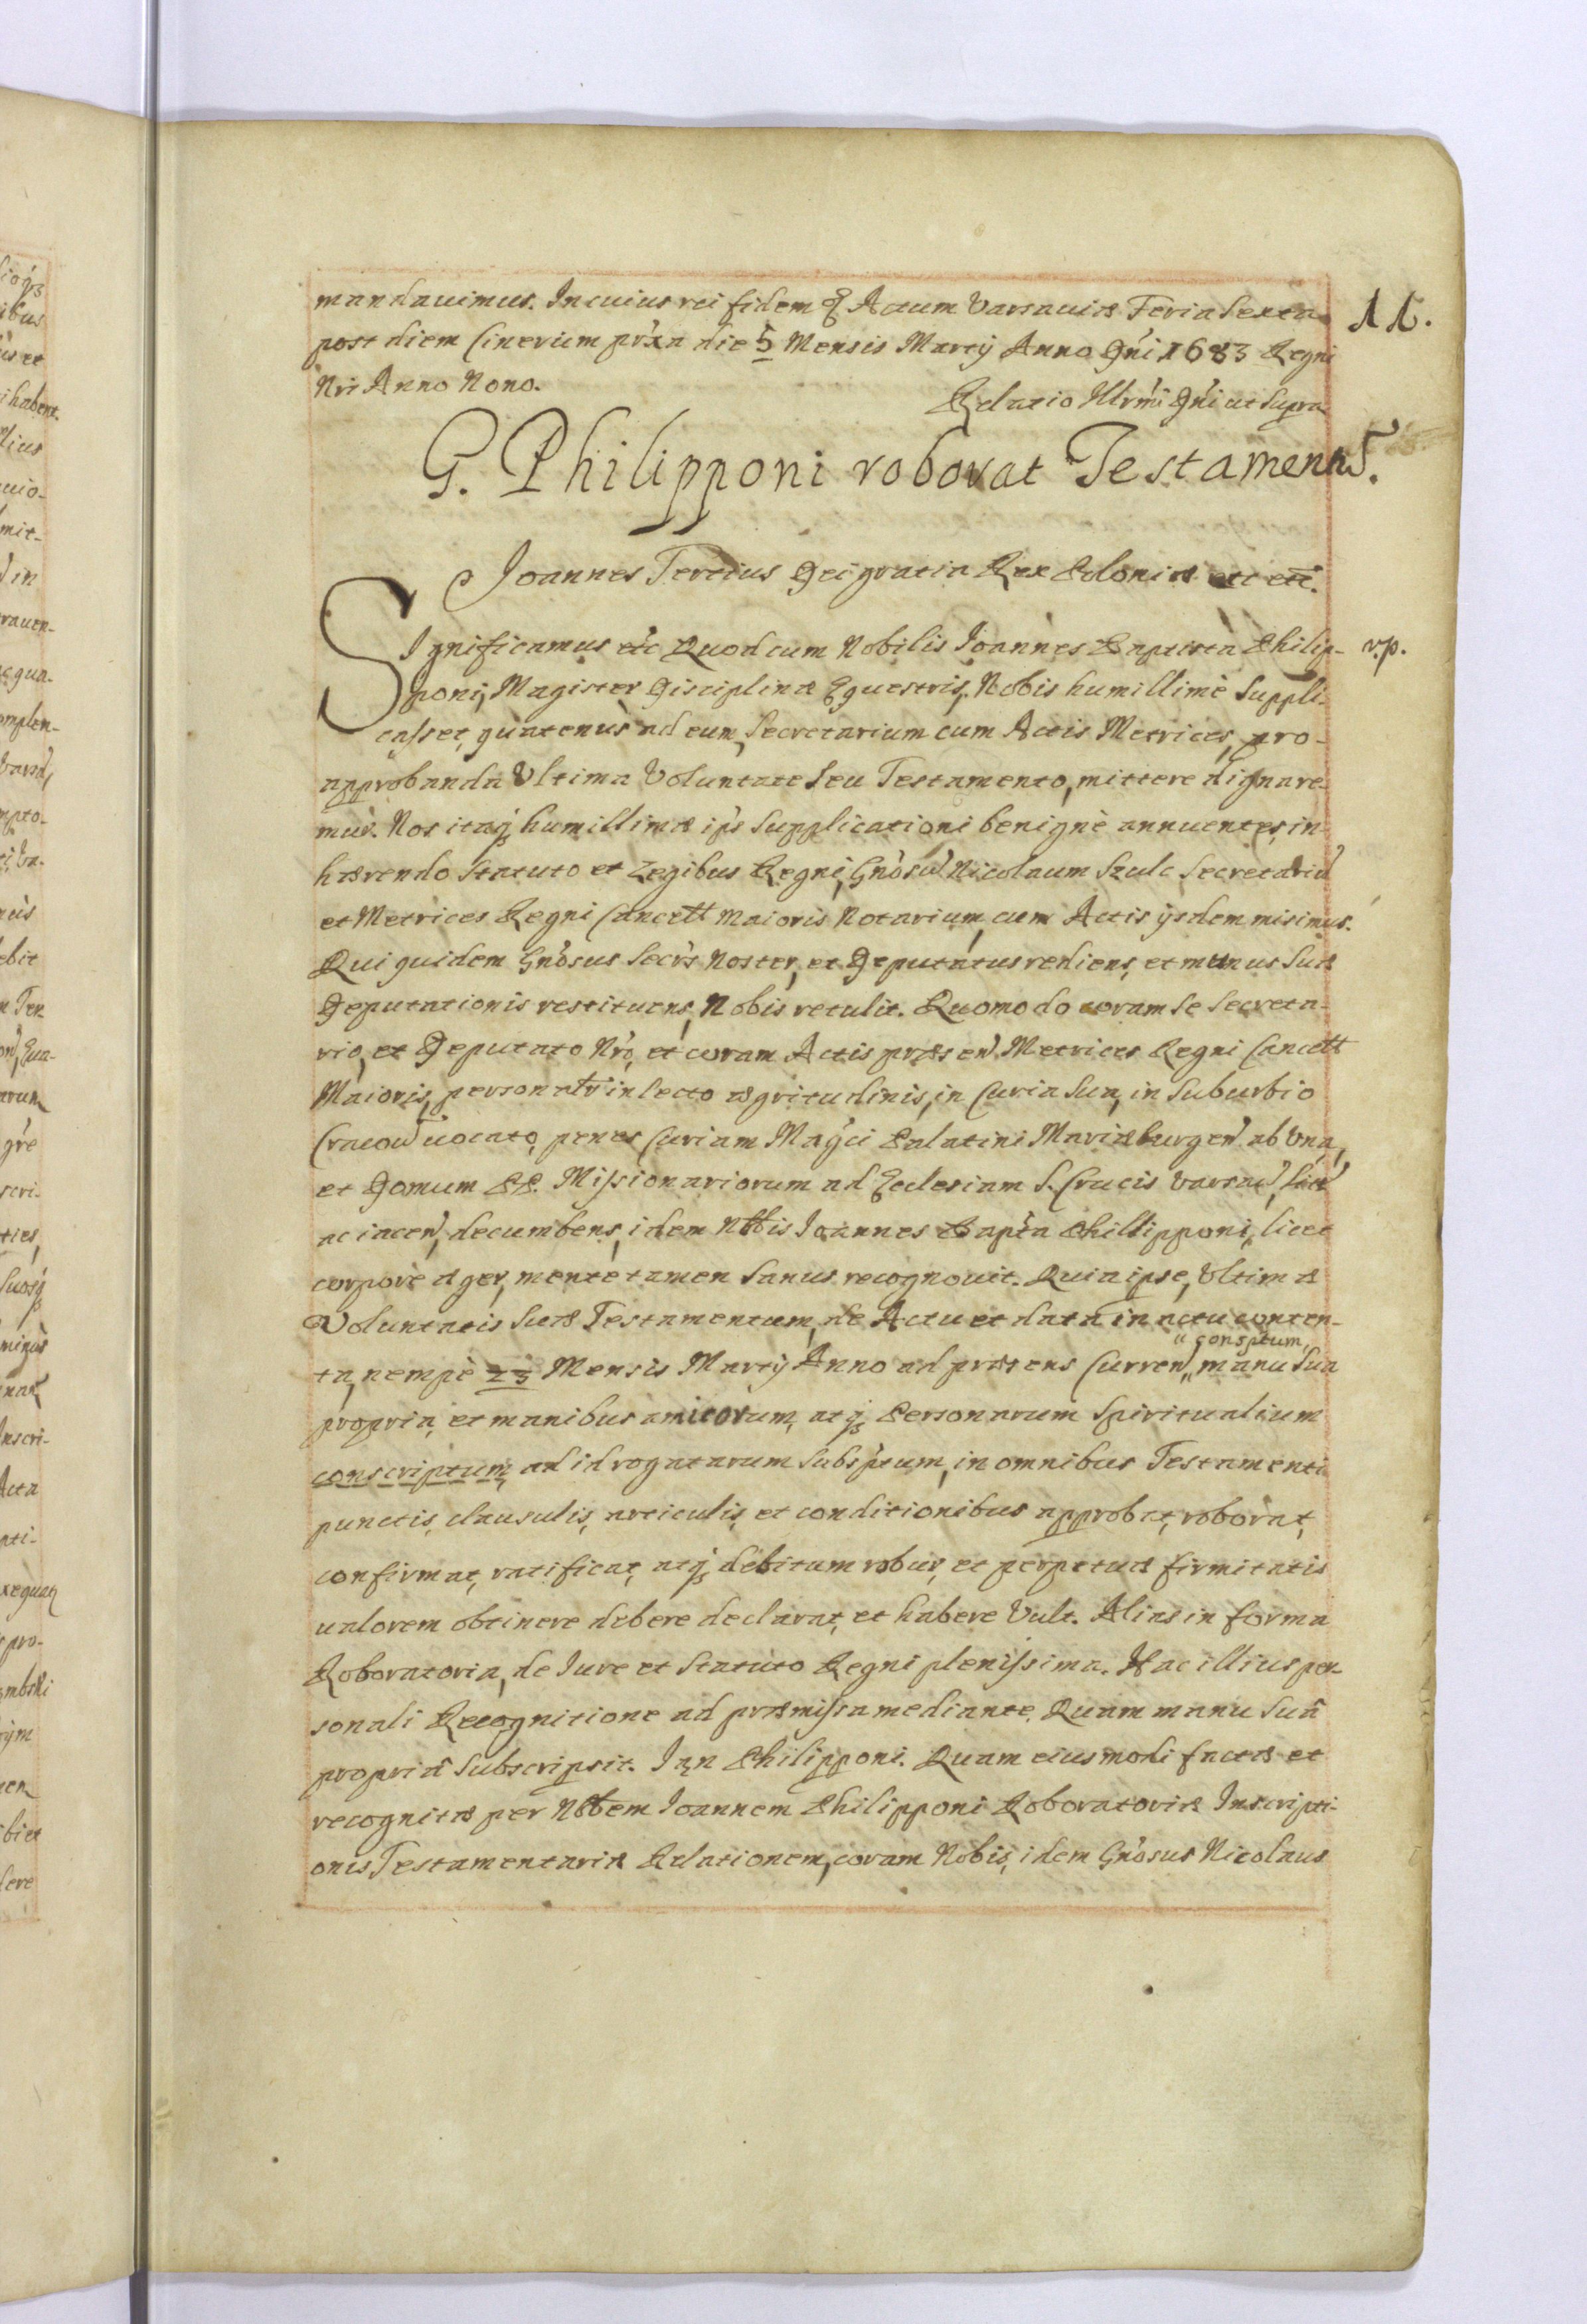 mandauimus. In cuius rei fidem & Actum Varsauiæ Feria Sexta 11.
post diem Cinerum pr̃xa die 5 Mensis Martij Anno Dñi 1683 Regni
Nri Anno Nono.
Relatio Illr̃mi Dñi ut Supra
G. Philipponi roborat Testamentũ.
Joannes Tertius Dei gratia Rex Poloniæ etc etc.
Significamus etc Quod cum Nobilis Ioannes Baptista Philip- v.p.
poni, Magister Disciplinæ Equestris, Nobis humillimè Suppli-
casset, quatenus ad eum, Secretarium cum Actis Metrices, pro-
approbanda Vltima Voluntate Seu Testamento, mittere dignare-
mur. Nos itaq; humillimæ ips Supplicationi benignè annuentes, in-
hærendo Statuto et Legibus Regni, Gñosũ Nicolaum Szulc Secretariũ
et Metrices Regni Cancell Maioris Notarium, cum Actis ijsdem misimus.
Qui quidem Gñosus Secrs Noster, et Deputatus rediens, et munus Suæ
Deputationis restituens, Nobis retulit. Quomodo coram Se Secreta-
rio, et Deputato Nro, et coram Actis præsen Metrices Regni Cancell
Maioris, personalr in lecto ægritudinis, in Curia Sua, in Suburbio
Cracow uocato, penes Curiam Magci Palatini Mariæburgen ab Vna,
et Domum PP. Missionariorum ad Ecclesiam S. Crucis Varsau, Sitã
ac iacen, decumbens, idem Nblis Ioannes Bapta Phillipponi, licet
corpore æger, mente tamen Sanus recognouit. Quia ipse, Vltimæ
Voluntatis Suæ Testamentum, de Actu et data in actu conten-
" consptum
ta, nempè 23 Mensis Martij Anno ad præsens Curren " manu Sua
propria, et manibus amicorum, atq; Personarum Spiritualium
conscriptum, ad id rogatarum Subsptum, in omnibus Testamenti
punctis, clausulis, articulis, et conditionibus approbat, roborat,
confirmat, ratificat, atq; debitum robur, et perpetuæ firmitatis
ualorem obtinere debere declarat, et habere Vult. Alias in forma
Roboratoria, de Iure et Statuto Regni plenissima. Hac illius per-
sonali Recognitione ad præmissa mediante. Quam manu Suâ
propriâ Subscripsit. Jan Philipponi. Quam eiusmodi factæ et
recognitæ per Nblem Ioannem Philipponi Roboratoriæ Inscripti-
onis, Testamentariæ Relationem, coram Nobis, idem Gñosus Nicolaus